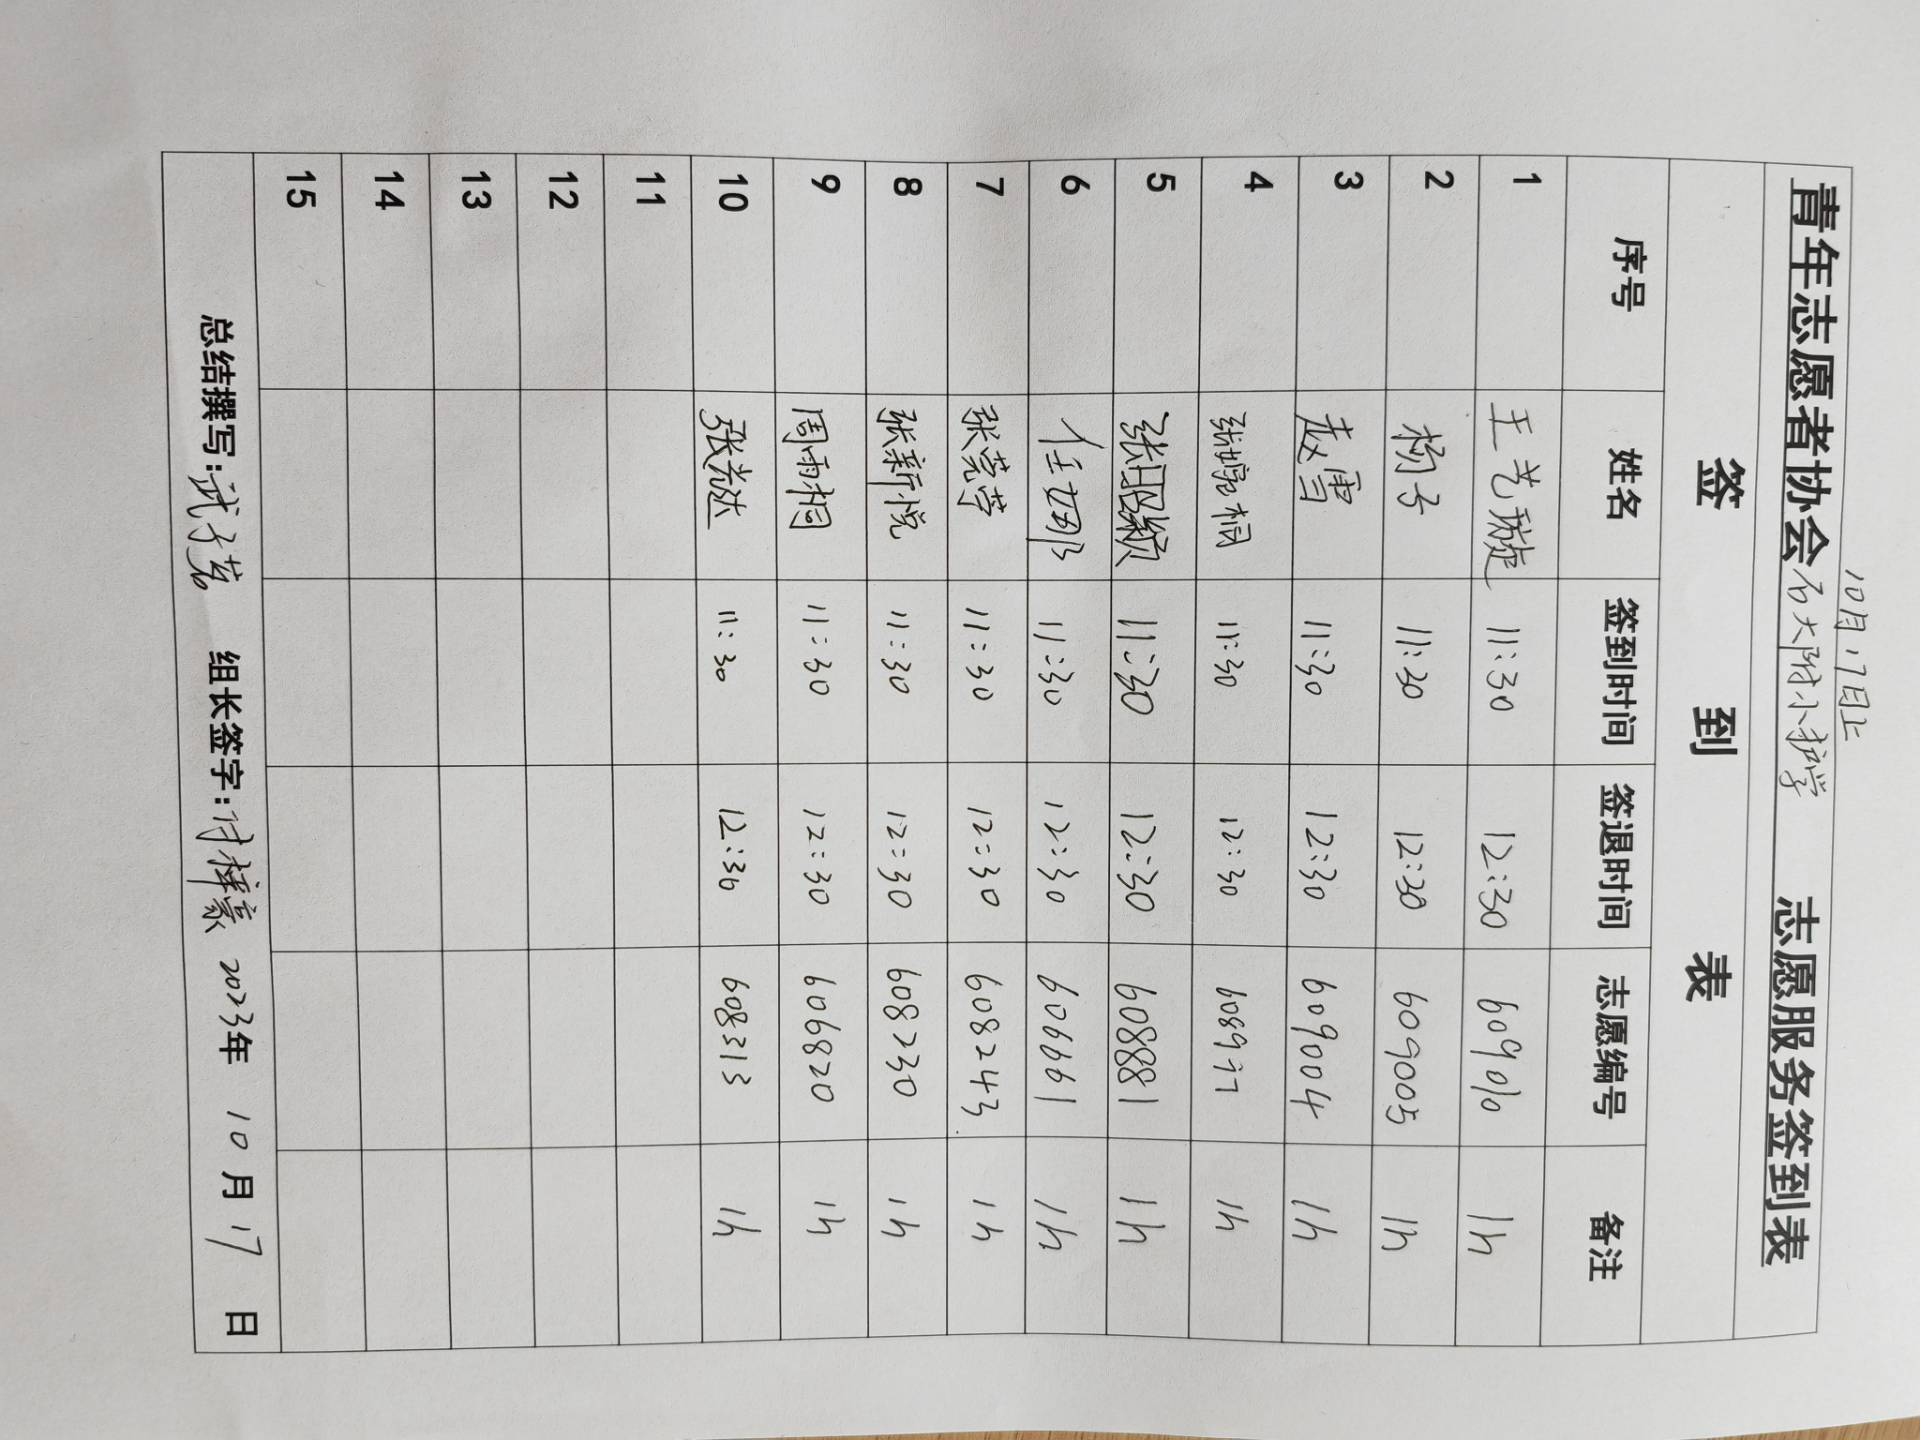 10月17日上
青年志愿者协会石大附小护学志愿服务签到表
签到表
序号 姓名 签到时间 签退时间 志愿编号 备注
1 王艺璇 11:30 12:30 1h
2 杨子 11:30 12:30 609005 1h
3 赵雪 11:30 12:30 609004 1h
4 张婷桐 11:30 12:30 1h
5 11:30 12:30 608881 1h
6 任姻 11:30 12:30 606661 1h
7 张莞苧 11:30 12:30 608243 1h
8 张新悦 11:30 12:30 608230 1h
9 周雨桐 11:30 12:30 606820 1h
10 张益达 11:30 12:30 608313 1h
11
12
13
14
15
总结撰写:武子茗 组长签字:许梓豪 2023年 10月17日